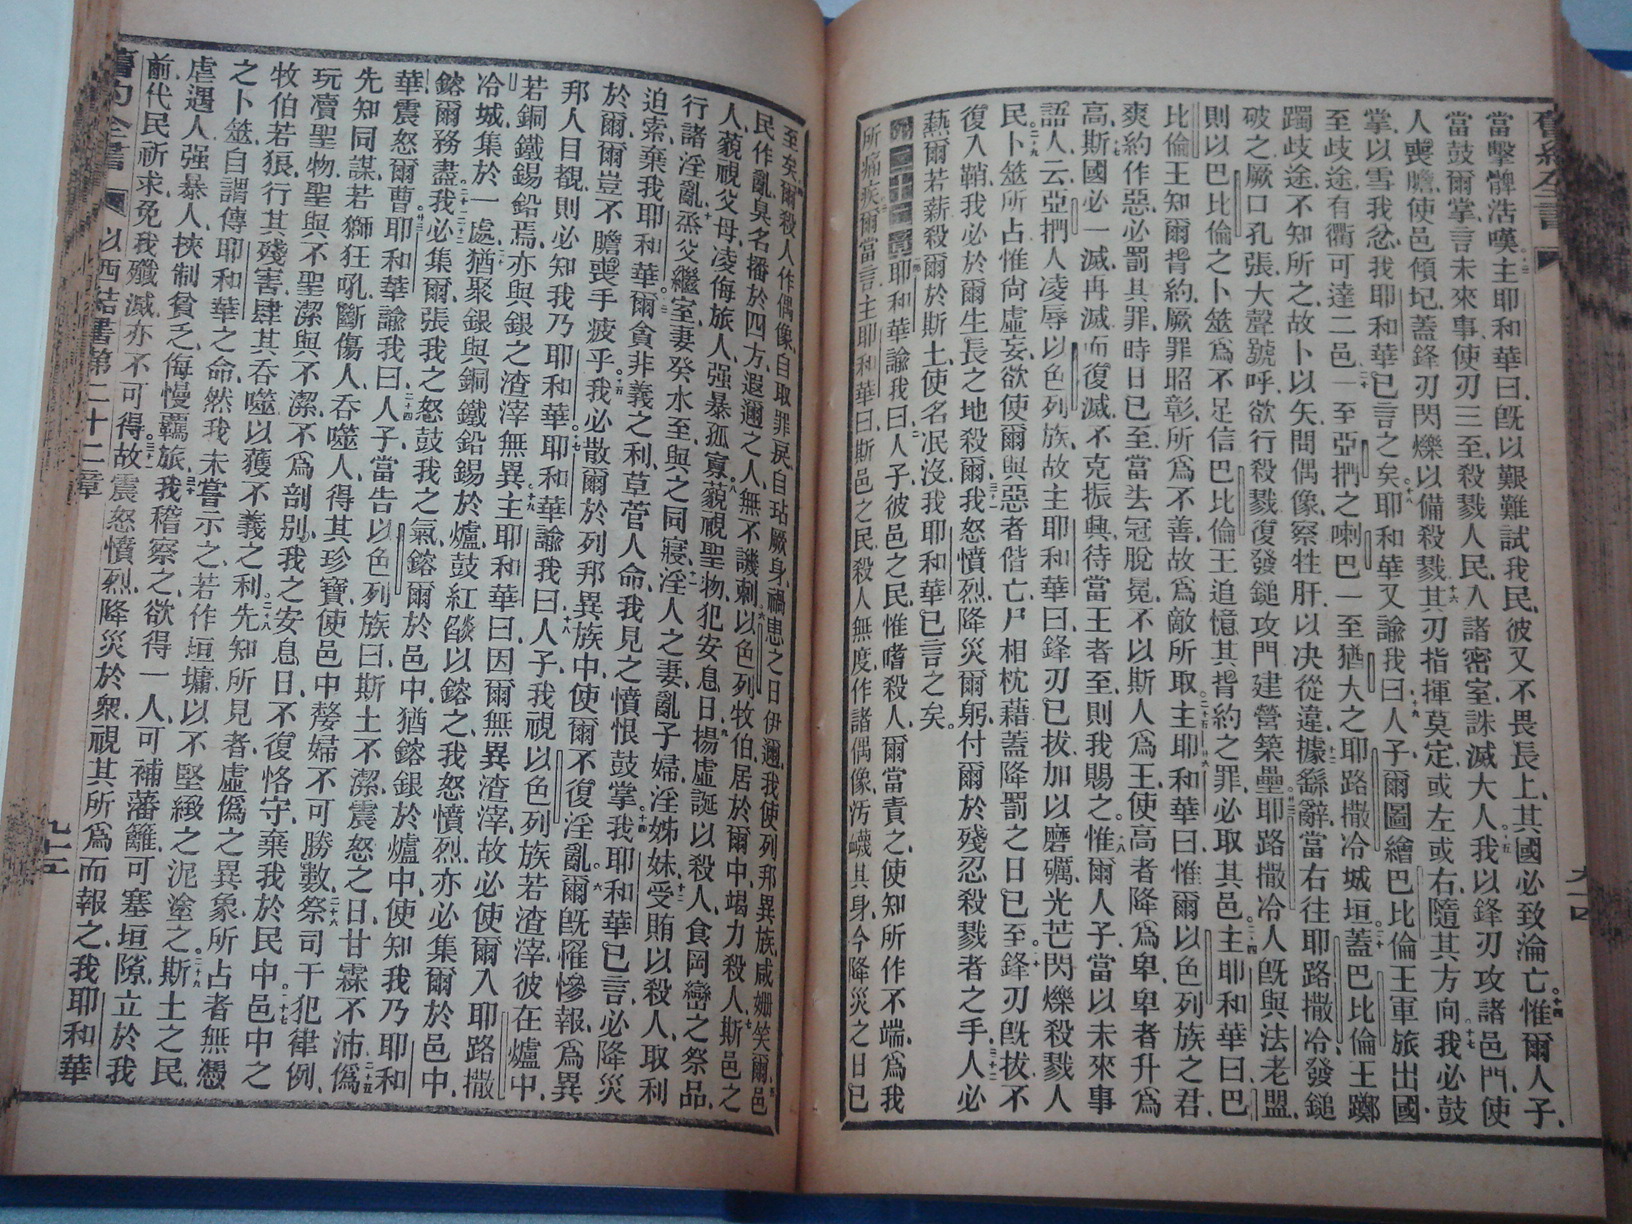 當擊髀浩嘆、主耶和華曰、旣以艱難試我民、彼又不畏長上、其國必致淪亡。十四惟爾人子、
當鼓爾掌、言未來事、使刃三至、殺戮人民、入諸密室、誅滅大人、十五我以鋒刃攻諸邑門、使
人喪膽、使邑傾圮、蓋鋒刃閃爍、以備殺戮、十六其刃指揮莫定、或左或右、隨其方向、十七我必鼓
掌、以雪我忿、我耶和華已言之矣、十八耶和華又諭我曰、十九人子、爾圖繪巴比倫王軍旅出國、
至歧途、有衢可達二邑、二十一至亞捫之喇巴、一至猶大之耶路撒冷城垣、蓋巴比倫王躑
躅歧途、不知所之、故卜以矢、問偶像、察牲肝、以决從違、據繇辭當右往耶路撒冷、發鎚
破之、厥口孔張、大聲號呼、欲行殺戮、復發鎚攻門、建營築壘、耶路撒冷人旣與法老盟、
則以巴比倫之卜筮、爲不足信、巴比倫王追憶其揹約之罪、必取其邑、主耶和華曰、巴
比倫王知爾揹約、厥罪昭彰、所爲不善、故爲敵所取、二十五主耶和華曰、惟爾以色列族之君、
爽約作惡、必罰其罪、時日已至、當去冠脫冕、不以斯人爲王、使高者降爲卑、卑者升爲
高、二十七斯國必一滅再滅而復滅、不克振興、待當王者至、則我賜之、二十八惟爾人子、當以未來事
語人云、亞捫人凌辱以色列族、故主耶和華曰、鋒刃已拔、加以磨礪、光芒閃爍、殺戮人
民、二十九卜筮所占、惟尙虛妄、欲使爾與惡者偕亡、尸相枕藉、蓋降罰之日已至、三十鋒刃旣拔、不
復入鞘、我必於爾生長之地殺爾、三十一我怒憤烈、降災爾躬、付爾於殘忍殺戮者之手、三十二人必
爇爾若薪、殺爾於斯土、使名泯沒、我耶和華已言之矣。
耶和華諭我曰、二人子、彼邑之民、惟嗜殺人、爾當責之、使知所作不端、爲我
所痛疾、三爾當言主耶和華曰、斯邑之民、殺人無度、作諸偶像、汚衊其身、今降災之日已
至矣、四爾殺人作偶像、自取罪戾、自玷厥身、禍患之日伊邇、我使列邦異族、咸姍笑爾、五爾邑
民作亂、臭名播於四方、遐邇之人、無不譏刺、六以色列牧伯居於爾中、竭力殺人、七斯邑之
人、藐視父母、凌侮旅人、强暴孤寡、八藐視聖物、犯安息日、九揚虛誕以殺人、食岡巒之祭品、
行諸淫亂、十烝父繼室、妻癸水至、與之同寢、十一淫人之妻、亂子婦、淫姊妹、十二受賄以殺人、取利
迫索、棄我耶和華、十三爾貪非義之利、草菅人命、我見之憤恨鼓掌、十四我耶和華已言、必降災
於爾、爾豈不膽喪手疲乎、十五我必散爾於列邦異族中、使爾不復淫亂、十六爾旣罹慘報、爲異
邦人目覩、則必知我乃耶和華、十七耶和華諭我曰、十八人子、我視以色列族若渣滓、彼在爐中、
若銅鐵錫鉛焉、亦與銀之渣滓無異、十九主耶和華曰、因爾無異渣滓、故必使爾入耶路撒
冷城、集於一處、二十猶聚銀與銅鐵鉛錫於爐、鼓紅燄以鎔之、我怒憤烈、亦必集爾於邑中、
鎔爾務盡、二十一我必集爾、張我之怒、鼓我之氣、鎔爾於邑中、二十二猶鎔銀於爐中、使知我乃耶和
華、震怒爾曹、二十三耶和華諭我曰、二十四人子、當告以色列族曰、斯土不潔、震怒之日、甘霖不沛、二十五僞
先知同謀、若獅狂吼、斷傷人、吞噬人、得其珍寶、使邑中嫠婦不可勝數、二十六祭司干犯律例、
玩凟聖物、聖與不聖、潔與不潔、不爲剖別、我之安息日、不復恪守、棄我於民中、二十七邑中之
牧伯若狼、行其殘害、肆其吞噬、以獲不義之利、二十八先知所見者、虛僞之異象、所占者無憑
之卜筮、自謂傳耶和華之命、然我未嘗示之、若作垣墉、以不堅緻之泥塗之、二十九斯土之民、
虐遇人、强暴人、挾制貧乏、侮慢羈旅、三十我稽察之、欲得一人、可補藩籬、可塞垣隙、立於我
前、代民祈求、免我殲滅、亦不可得、三十一故震怒憤烈、降災於衆、視其所爲而報之、我耶和華
舊約全書
以西結書第二十二章
九十三
舊約全書
九十四